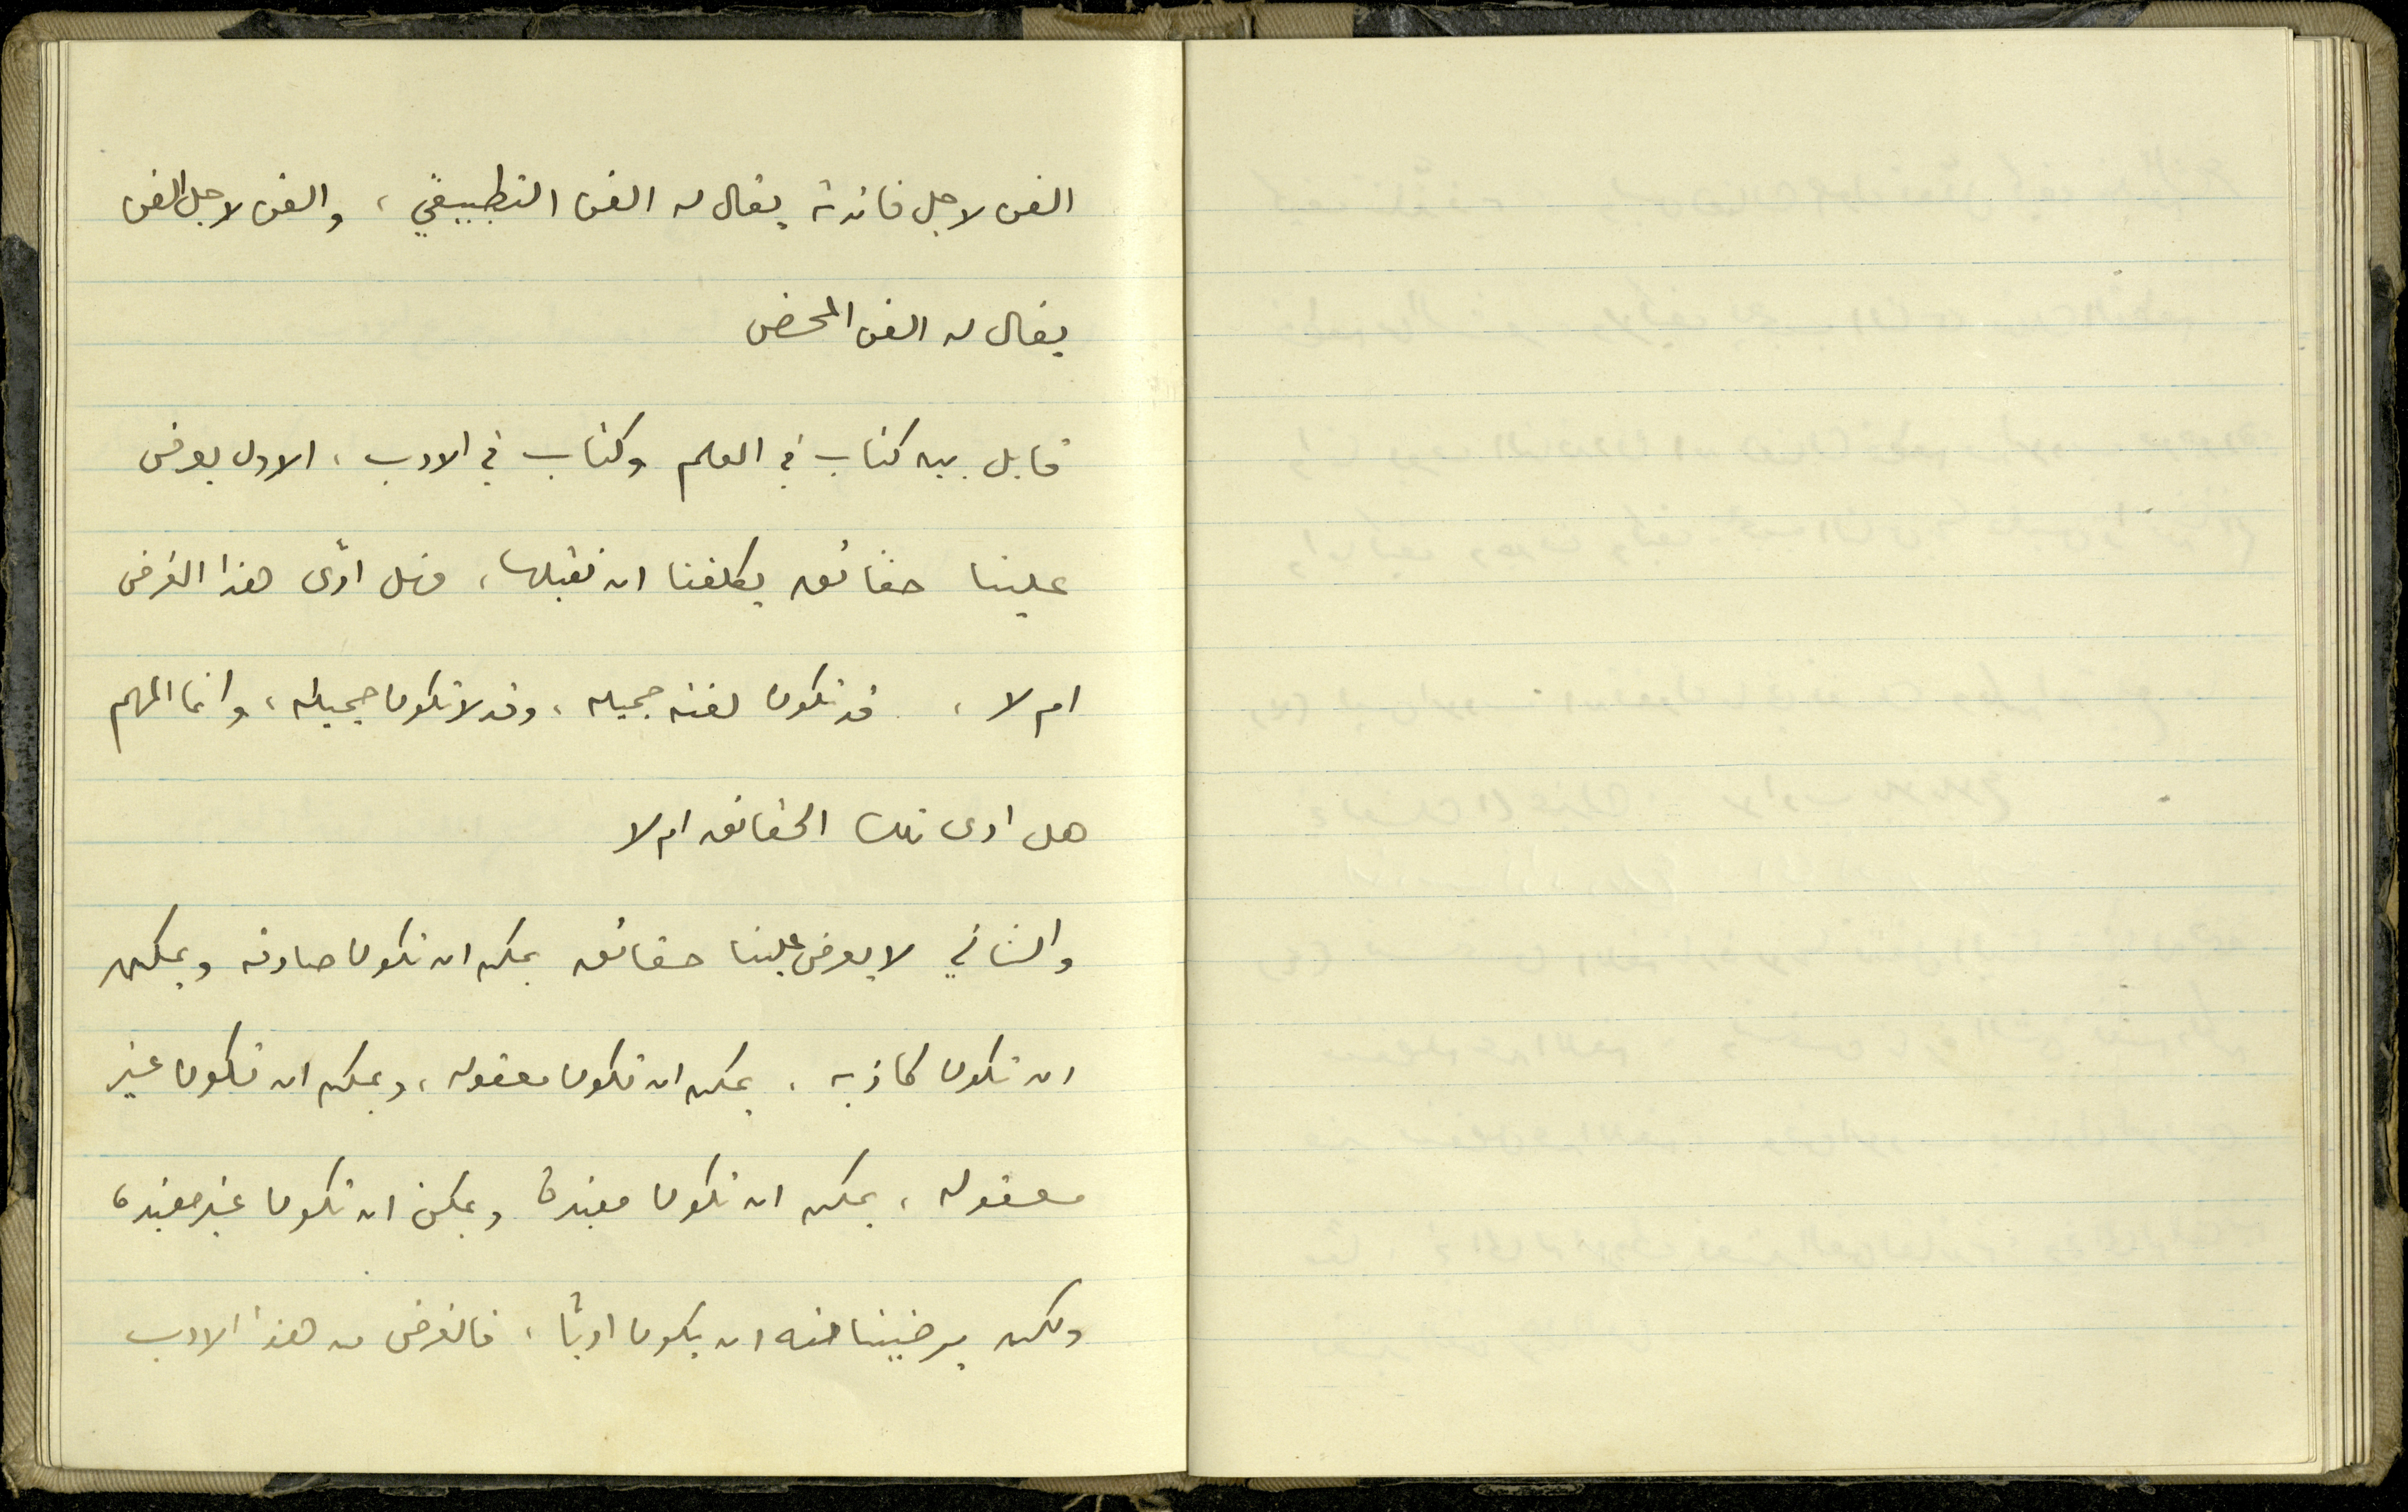 الفن لاجل فائدته يقال له الفن التطبيقي ، والفن لاجل الفن
يقال له الفن المحض
قابل بين كتاب في العلم وكتاب في الادب ، الاول يعرض
علينا حقائق يكلفنا ان نقبلها ، فهل ادّى هذا الغرض
ام لا ، قد تكون لغته جميله ، وقد لا تكون جميله ، وانما المهم
هل ادى تلك الحقائق ام لا
والثاني لا يعرض علينا حقائق يمكن ان تكون صادقه ويمكن
ان تكون كاذبه ، يمكن ان تكون معقوله ، ويمكن ان تكون غير
معقوله ، يمكن ان تكون مفيدة ويمكن ان تكون غير مفيدة
ولكن يرضينا منه ان يكون ادبًا ، فالغرض من هذا الادب